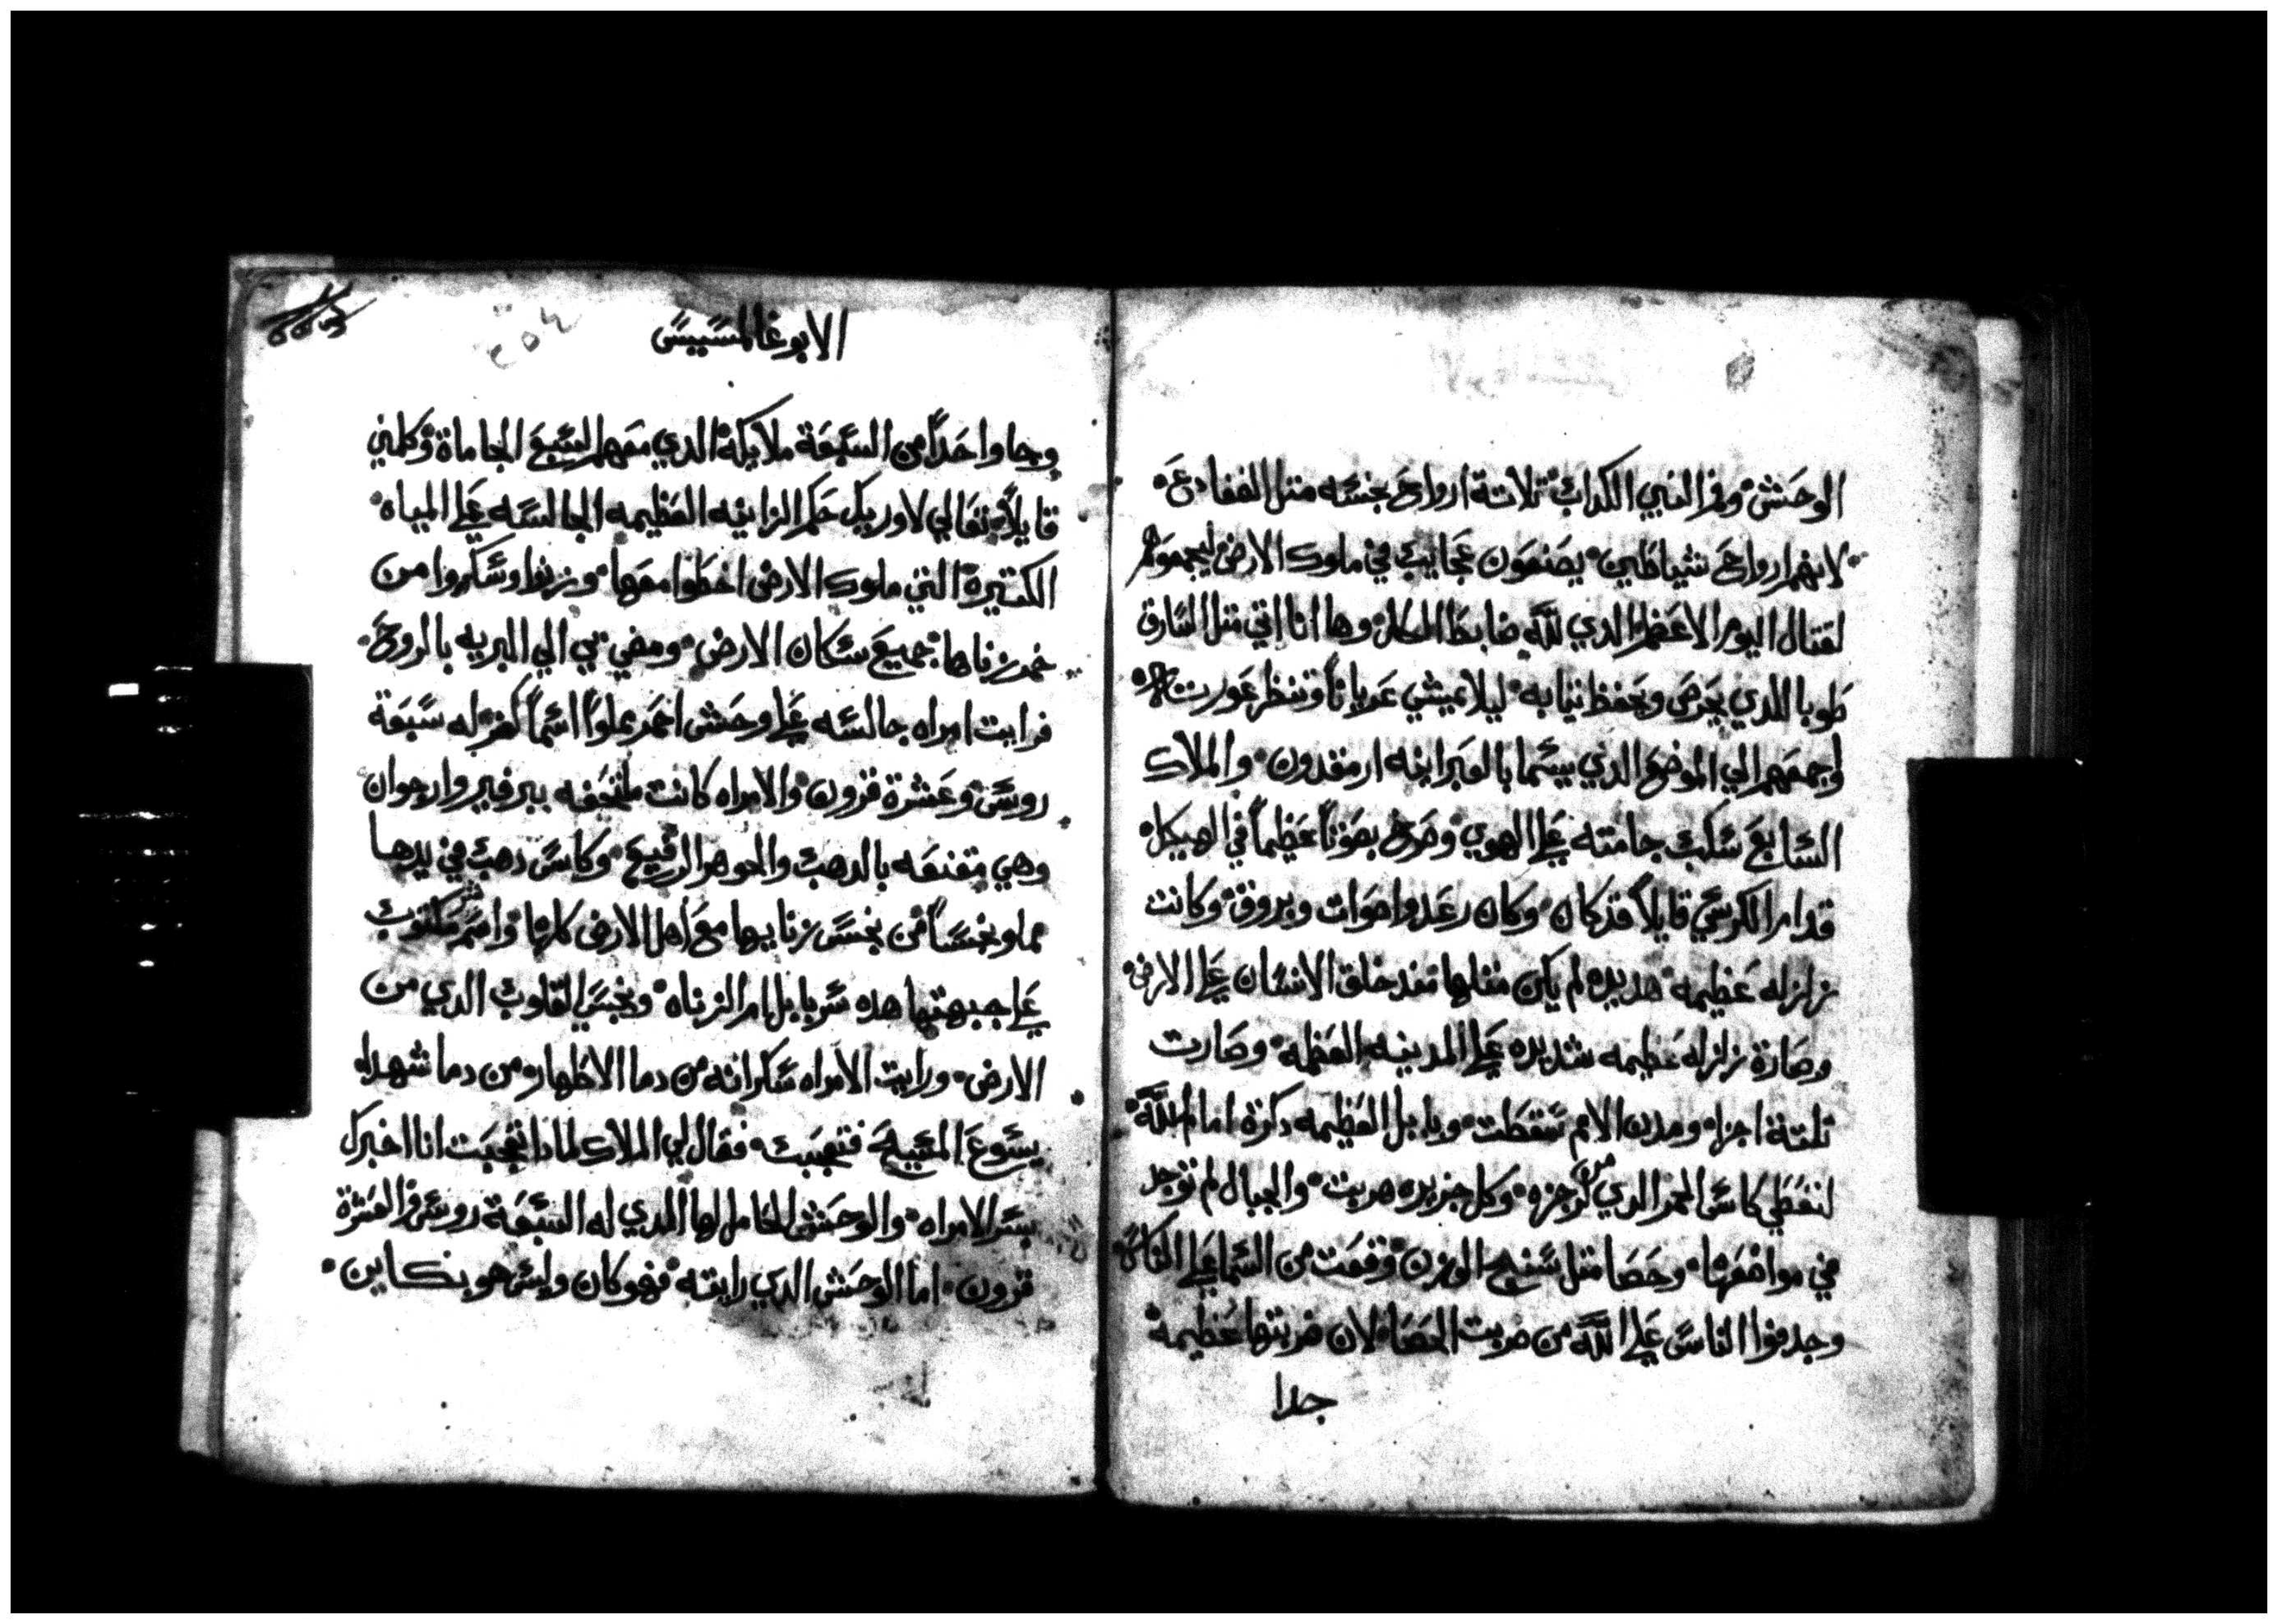 الوحش وفم النبي الكداب تلاتة ارواح نجسه متل الضفادع
لانهم ارواح شياطين يصنعون عجايب في ملوك الارض ليجمعوهم
لقتال اليوم الاعظم الدي لله ضابط الكل وها انا اتي متل السارق
طوبا للدي يحرص ويحفظ تيابه ليلا يمشي عريانا وتنظر عورته
واجمعهم الي الموضع الدي يسما بالعبرانيه ارمقدون والملاك
السابع سكب جامته علي الهوي وصرخ بصوتا عظيما في الهيكل
قدام الكرسي قايلا قد كان وكان رعد واصوات وبروق وكانت
زلزله عظيمه هديده لم يكن متلها مند خلق الانسان علي الارض
وصارة زلزله عظيمه شديده علي المدينه العظمه وصارت
تلتة اجزا ومدن الامم سقطت وبابل العظيمه دكرة امام الله
لتعطي كاس الخمر الدي من رجزه وكل جزيره هربت والجبال لم توجد
في مواضعها وحصا متل سنج الوزن وقعت من السما علي الناس
وجدفوا الناس علي الله من ضربت الحصاه لان ضربتها عظيمة
جدا
الابوغالمسيس
وجا واحدا من السبعة ملايكة الدي معهم السبع الجاماة وكلمني
قايلا تعالي لاوريك حكم الزانيه العظيمه الجالسه علي المياه
الكتيرة التي ملوك الارض اخطوا معها وزنوا وسكروا من
خمر زناها جميع سكان الارض ومضي بي الي البريه بالروح
فرايت امراه جالسه علي وحش احمر مملوا اسما كفر له سبعة
روس وعشرة قرون والامراه كانت ملتحفه ببرفير وارجوان
وهي مقنعه بالدهب والجوهر الرفيع وكاس دهب في يدها
مملو نجسا من نجس زناييها مع اهل الارض كلها واسم مكتوب
علي جبهتها هده سر بابل ام الزناه ونجس القلوب الدي من
الارض ورايت الامراه سكرانه من دما الاطهار من دما شهداه
يسوع المسيح فتعجبت فقال لي الملاك لمادا تعجبت انا اخبرك
بسر الامراه والوحش الحامل لها الدي له السبعة روس والعشرة
قرون اما الوحش الدي رايته فهو كان وليس هو بكاين